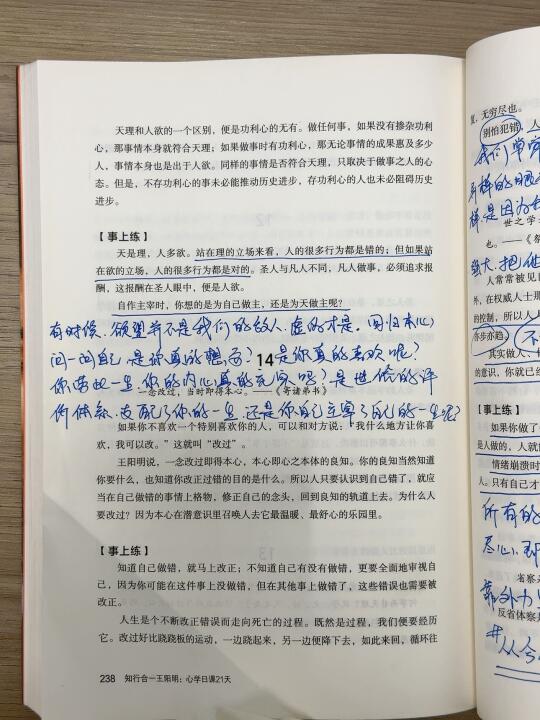 天理和人欲的一个区别，便是功利心的无有。做任何事，如果没有掺杂功利
心，那事情本身就符合天理；如果做事时有功利心，那无论事情的成果惠及多少
人，事情本身也是出于人欲。同样的事情是否符合天理，只取决于做事之人的心
态。但是，不存功利心的事未必能推动历史进步，存功利心的人也未必阻碍历史
进步。
【事上练】
天是理，人多欲。站在理的立场来看，人的很多行为都是错的；但如果站
在欲的立场，人的很多行为都是对的。圣人与凡人不同，凡人做事，必须追求报
酬，这报酬在圣人眼中，便是人欲。
自作主宰时，你想的是为自己做主，还是为天做主呢？
有时候，欲望并不是我们的敌人，虚的才是。回归本心
问一问自己是你真的想吗？是你真的喜欢呢？
14
你凭此一生你的内心真的充实吗？是世俗的评
一念改过，当时即得本心。——《寄诸弟书》
价体系支配了你的一生还是你自己主宰了自己的一生呢？
如果你不喜欢一个特别喜欢你的人，可以和对方说：“我什么地方让你喜
欢，我可以改。”这就叫“改过”。
王阳明说，一念改过即得本心，本心即心之本体的良知。你的良知当然知道
你要什么，也知道你改正过错的目的是什么。所以人只要认识到自己错了，就应
当在自己做错的事情上格物，修正自己的念头，回到良知的轨道上去。为什么人
要改过？因为本心在潜意识里召唤人去它最温暖、最舒心的乐园里。
【事上练】
知道自己做错，就马上改正；不知道自己有没有做错，更要全面地审视自
己，因为你可能在这件事上没做错，但在其他事上做错了，这些错误也需要被
改正。
人生是个不断改正错误而走向死亡的过程。既然是过程，我们便要经历
它。改过好比跷跷板的运动，一边跷起来，另一边便降下去，如此来回，循环往
238 知行合一王阳明：心学日课21天
复，无穷尽也。
别怕犯错，人
我们常常
样是因为
世之学
也。——《
强大，把他
人常常被见
外，在权威人士那
的控制，所以人
亦步亦趋
不
其实做人、
的意识，你就已经
【事上练】
如果你做了
是人做的，人就
情绪崩溃时
人。只有自己才
所有的
尽心、即
省察是
靠外力
反省体察
#从今